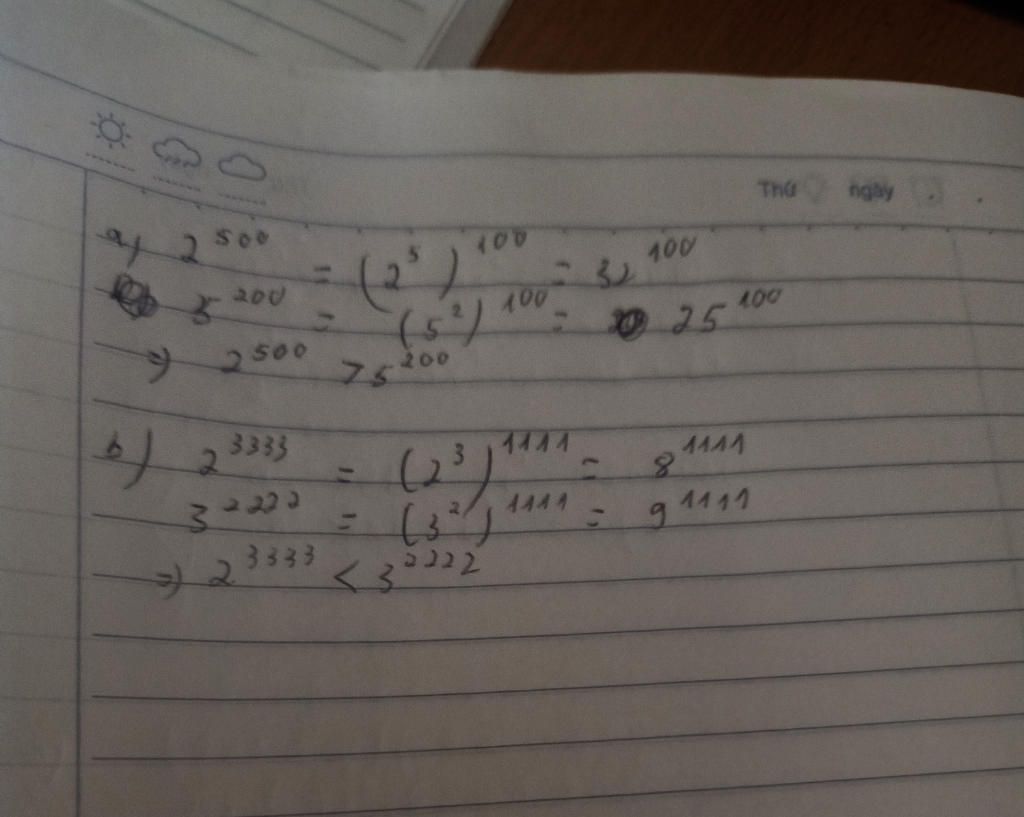 Thứ ngày
a) 2^500 = (2^5)^100 = 32^100
5^200 = (5^2)^100 = 25^100
=> 2^500 > 5^200
b) 2^3333 = (2^3)^1111 = 8^1111
3^2222 = (3^2)^1111 = 9^1111
=> 2^3333 < 3^2222